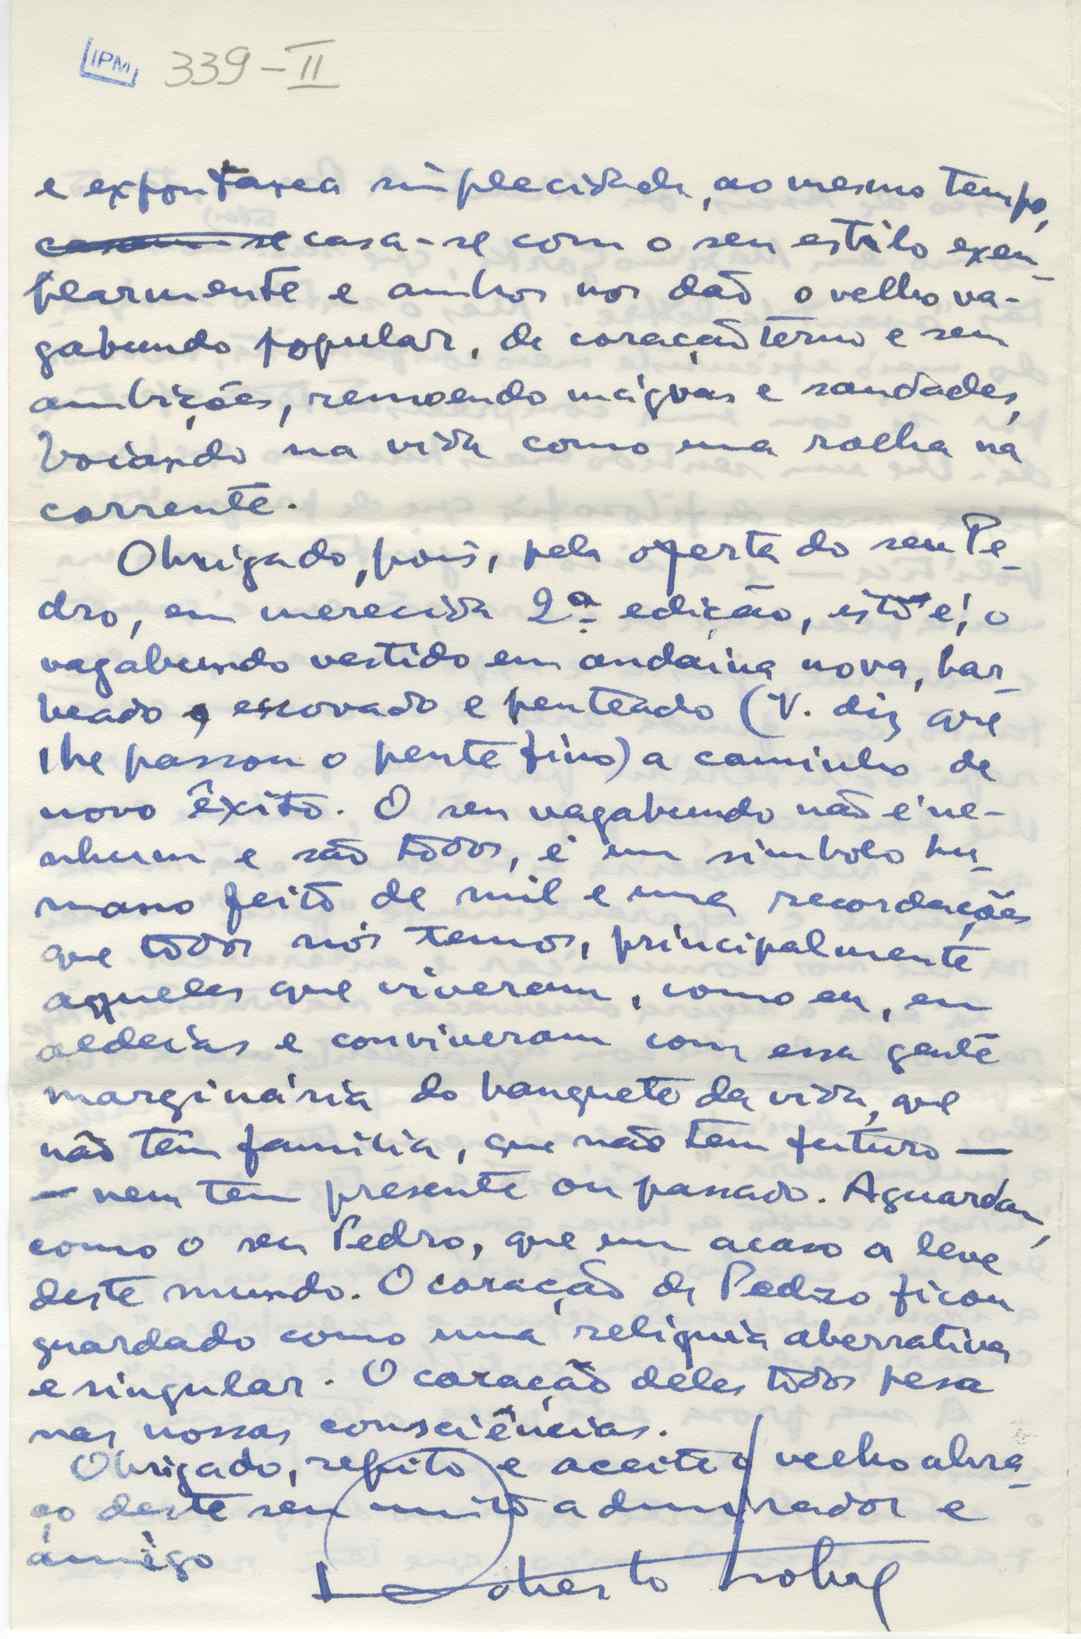 IPM 339-II
e expontanea simplecidade, ao mesmo tempo,
casam-se casa-se com o seu estilo exem-
plarmente e ambos nos dão o velho va-
gabundo popular, de coração terno e sem
ambições, remoendo mágoas e saudades,
boiando na vida como uma rolha na
corrente.
Obrigado, pois, pela oferta do seu Pe-
dro, em merecida 2ª edição, isto é, o
vagabundo vestido em andaina nova, bar-
beado, escovado e penteado (V. diz que
lhe passou o pente fino) a caminho de
novo êxito. O seu vagabundo não é ne-
nhum e são todos, é um simbolo hu-
mano feito de mil e uma recordações
que todos nós temos, principalmente
aqueles que viveram, como eu, em
aldeias e conviveram com essa gente
marginária do banquete da vida, que
não têm familia, que não tem futuro —
— nem tem presente ou passado. Aguardam,
como o seu Pedro, que um acaso a leve
deste mundo. O coração de Pedro ficou
guardado como uma reliquia aberrativa
e singular. O coração deles todos pesa
nas nossas consciências.
Obrigado, repito e aceite o velho abra-
ço deste seu muito admirador e
amigo
Roberto Nobre